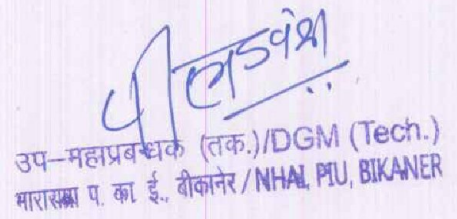 उप-महाप्रबन्धक (तक.)/DGM (Tech.)
भारारामप्रा प. का ई., बीकानेर / NHAI, PIU, BIKANER